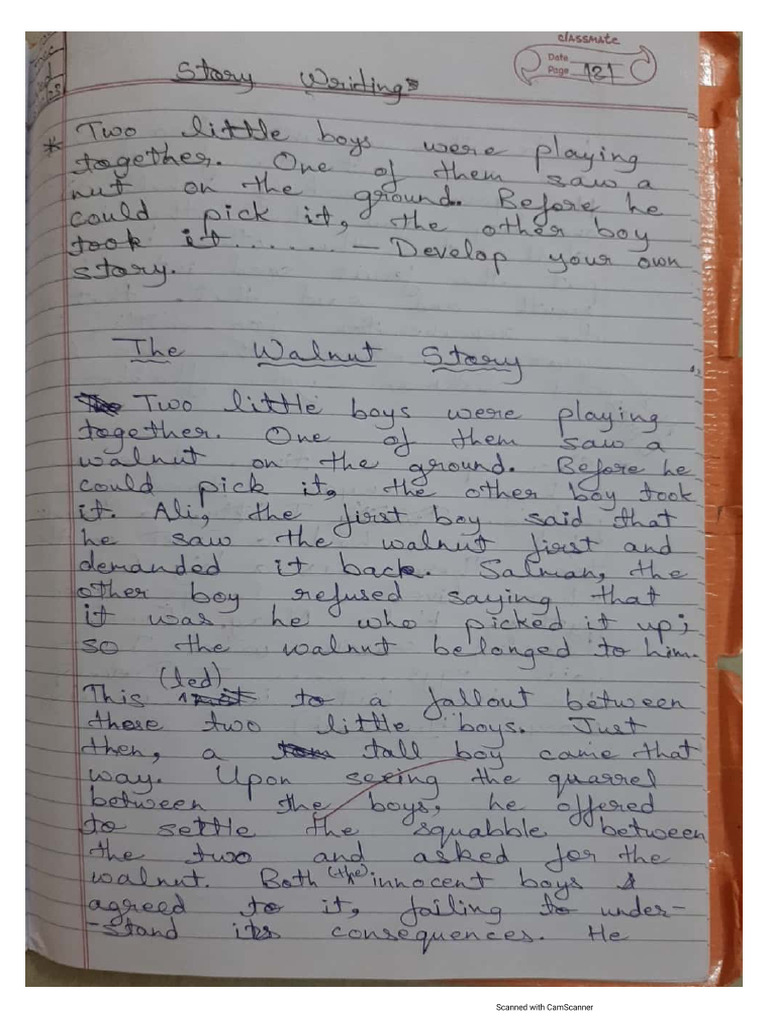 classmate
Date
Page 121
Story Writings
* Two little boys were playing
together. One of them saw a
nut on the ground. Before he
could pick it, the other boy
took it....... – Develop your own
story.
The Walnut Story
Two little boys were playing
together. One of them saw a
walnut on the ground. Before he
could pick it, the other boy took
it. Ali, the first boy said that
he saw the walnut first and
demanded it back. Salman, the
other boy refused saying that
it was he who picked it up;
so the walnut belonged to him.
(led)
This to a fallout between
these two little boys. Just
then, a tall boy came that
way. Upon seeing the quarrel
between the boys, he offered
to settle the squabble between
the two and asked for the
walnut. Both (the) innocent boys
agreed to it, failing to under-
-stand its consequences. He
Scanned with CamScanner